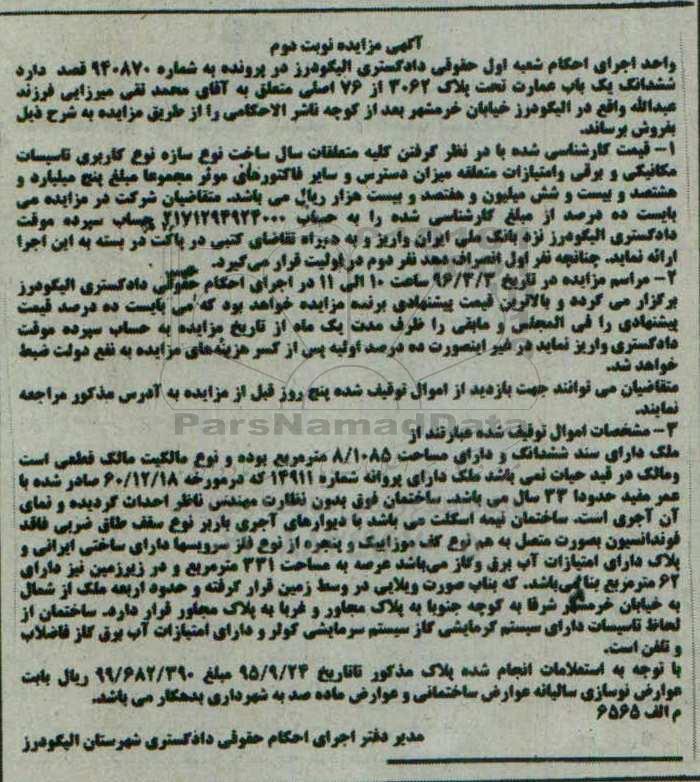 آگهی مزایده نوبت دوم
واحد اجرای احکام شعبه اول حقوقی دادگستری الیگودرز در پرونده به شماره ۹۴۰۸۷۰ قصد دارد
ششدانگ یک باب عمارت تحت پلاک ۳۰۶۲ از ۷۶ اصلی متعلق به آقای محمد تقی میرزایی فرزند
عبدالله واقع در الیگودرز خیابان خرمشهر بعد از کوچه ناشر الاحکامی را از طریق مزایده به شرح ذیل
بفروش برساند.
۱- قیمت کارشناسی شده با در نظر گرفتن کلیه متعلقات سال ساخت نوع سازه نوع کاربری تاسیسات
مکانیکی و برقی وامتیازات متعلقه میزان دسترس و سایر فاکتورهای موثر مجموعا مبلغ پنج میلیارد و
هشتصد و بیست و شش میلیون و هفتصد و بیست هزار ریال می باشد. متقاضیان شرکت در مزایده می
بایست ده درصد از مبلغ کارشناسی شده را به حساب ۲۱۷۱۲۹۴۹۲۴۰۰۰ حساب سپرده موقت
دادگستری الیگودرز نزد بانک ملی ایران واریز و به همراه تقاضای کتبی در پاکت در بسته به این اجرا
ارائه نماید. چنانچه نفر اول انصراف دهد نفر دوم در اولیت قرار می‌گیرد.
۲- مراسم مزایده در تاریخ ۹۶/۳/۳ ساعت ۱۰ الی ۱۱ در اجرای احکام حقوقی دادگستری الیگودرز
برگزار می گردد و بالاترین قیمت پیشنهادی برنده مزایده خواهد بود که می بایست ده درصد قیمت
پیشنهادی را فی المجلس و مابقی را ظرف مدت یک ماه از تاریخ مزایده به حساب سپرده موقت
دادگستری واریز نماید در غیر اینصورت ده درصد اولیه پس از کسر هزینه‌های مزایده به نفع دولت ضبط
خواهد شد.
متقاضیان می توانند جهت بازدید از اموال توقیف شده پنج روز قبل از مزایده به آدرس مذکور مراجعه
نمایند.
۳- مشخصات اموال توقیف شده عبارتند از
ملک دارای سند ششدانگ و دارای مساحت ۸/۱۰۸۵ مترمربع بوده و نوع مالکیت مالک قطعی است
ومالک در قید حیات نمی باشد ملک دارای پروانه شماره ۱۴۹۱۱ که درمورخه ۶۰/۱۲/۱۸ صادر شده با
عمر مفید حدودا ۳۳ سال می باشد. ساختمان فوق بدون نظارت مهندس ناظر احداث گردیده و نمای
آن آجری است. ساختمان نیمه اسکلت می باشد با دیوارهای آجری باربر نوع سقف طاق ضربی فاقد
فونداسیون بصورت متصل به هم نوع کف موزاییک و پنجره از نوع فلز سرویسها دارای ساختی ایرانی و
پلاک دارای امتیازات آب برق وگاز می‌باشد عرصه به مساحت ۳۳۱ مترمربع و در زیرزمین نیز دارای
۶۲ مترمربع بنا می‌باشد. که بناب صورت ویلایی در وسط زمین قرار گرفته و حدود اربعه ملک از شمال
به خیابان خرمشهر شرقا به کوچه جنوبا به پلاک مجاور و غربا به پلاک مجاور قرار دارد. ساختمان از
لحاظ تاسیسات دارای سیستم گرمایشی گاز سیستم سرمایشی کولر و دارای امتیازات آب برق گاز فاضلاب
و تلفن است.
با توجه به استعلامات انجام شده پلاک مذکور تاتاریخ ۹۵/۹/۲۴ مبلغ ۹۹/۶۸۲/۳۹۰ ریال بابت
عوارض نوسازی سالیانه عوارض ساختمانی و عوارض ماده صد به شهرداری بدهکار می باشد.
م الف ۶۵۶۵
مدیر دفتر اجرای احکام حقوقی دادگستری شهرستان الیگودرز
ParsNamadData